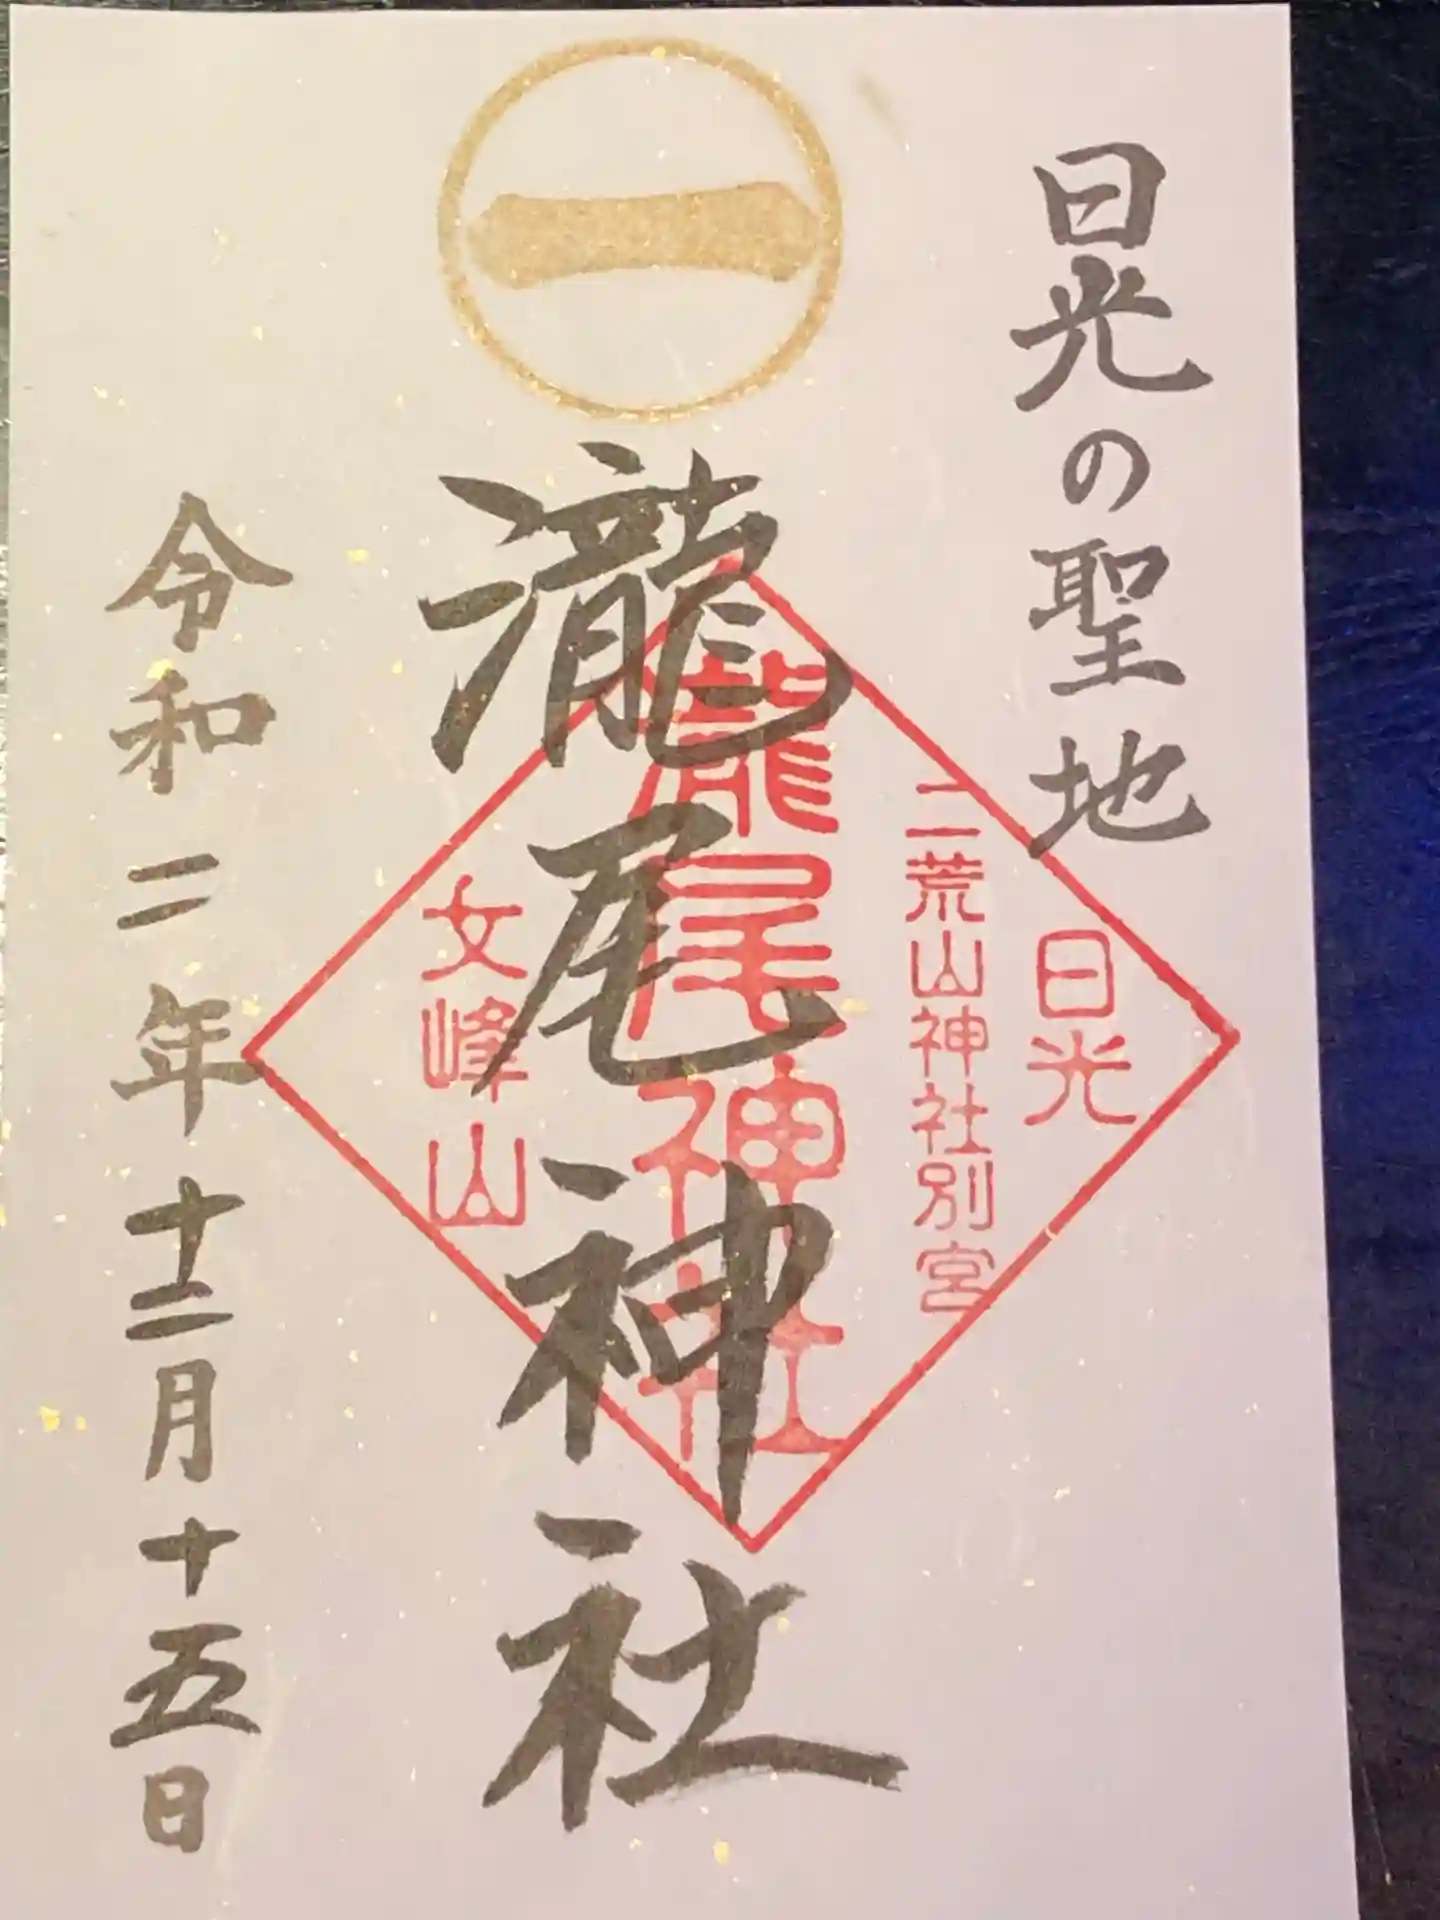 日光の聖地
一
瀧尾神社
日光
二荒山神社別宮
瀧尾神社
女峰山
令和二年十二月十五日